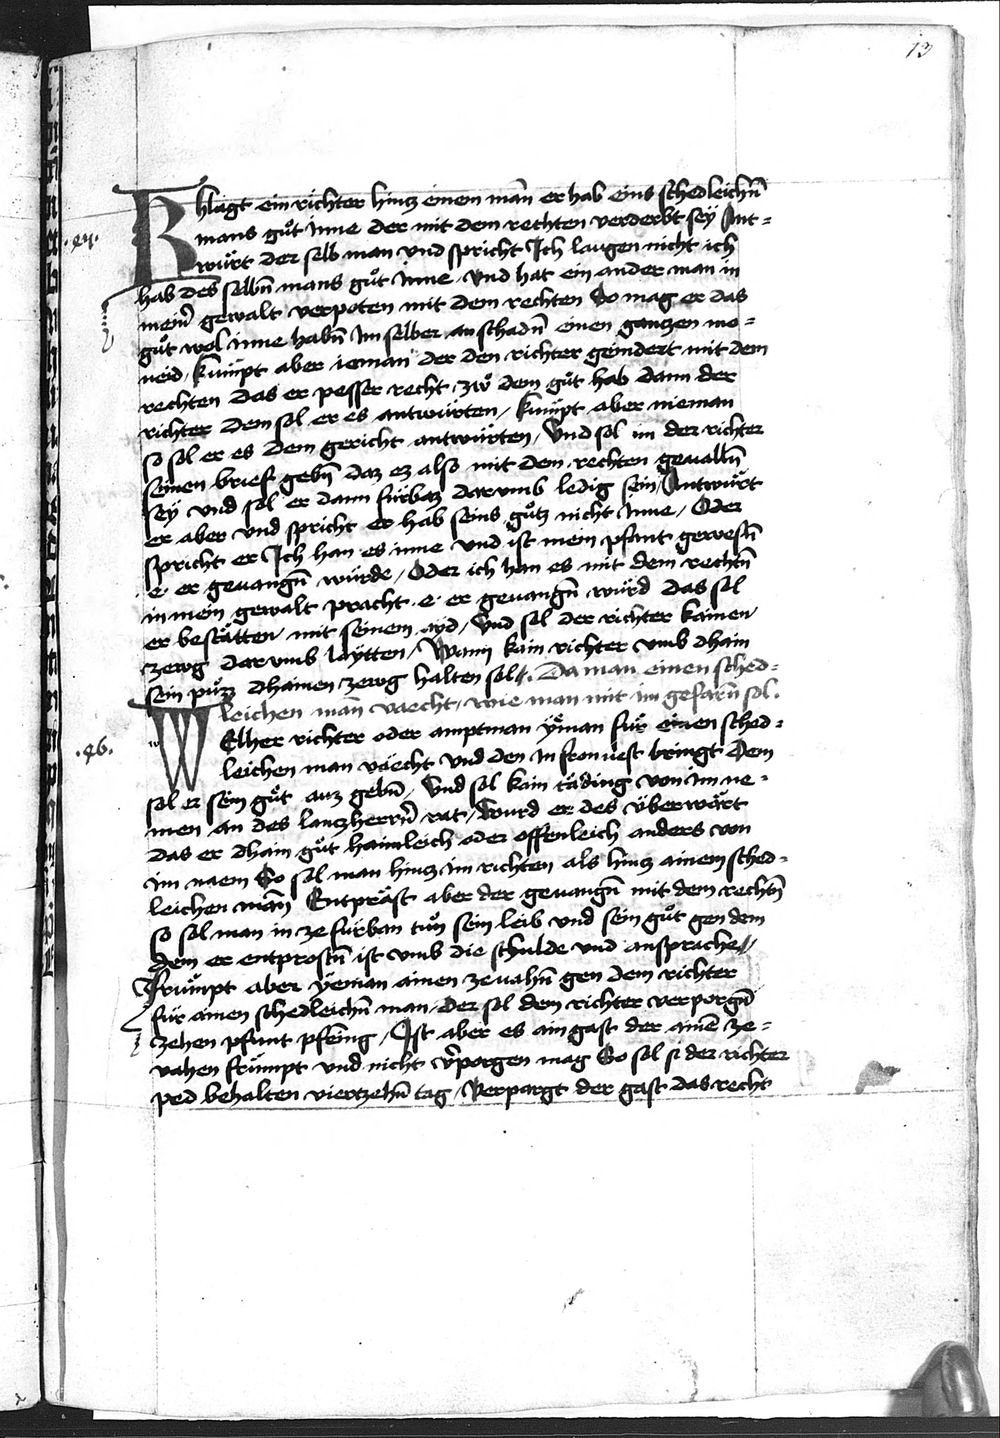 13
Khlagt ein richter hincz einen man̄ er hab eins schedleichn̄
.44. mans gůt Inne der mit dem rechten verderbt sey Ant=
würt der selb man vnd spricht Ich laugen nicht ich
hab des selbn̄ mans gůt Inne / vnd hat ein ander man in
mein̄ gewalt verpoten mit dem rechten So mag er das
gůt wol inne habn̄ Im selber an schadn̄ einen gantzen mo=
neid / kumpt aber ieman der den richter geindert mit dem
rechten das er pesser recht zwo dem gůt hab dann der
richter dem sol er es antwürten / kumpt aber nieman
so sol er es dem gericht antwürten / Vnd sol im der richter
seinen brief gebn̄ daz ez also mit dem rechten geualln̄
sey vnd sol er dann fürbaz darumb ledig sein / Antwürt
er aber vnd spricht er hab seins gůtz nicht Inne / Oder
spricht er Ich han es inne vnd ist mein pfant gewesn̄
e er geuangn̄ würde / Oder ich han es mit dem rechtn̄
in mein gewalt pracht e er geuangn̄ würd das sol
er bestätten mit seinem ayd / Vnd sol der richter kainen
zewg darumb laytten / Wann kain richter vmb dhain
sein půzz dhainen zewg halten sol. Da man einen sched=
leichen man̄ vaecht / wie man mit im gefarn̄ sol.
.46. WElher richter oder amptman yeman für einen sched=
leichen man väecht vnd den In fronuest bringt Dem
sol er sein gůt auz gebn̄ / Vnd sol kain täding von im ne=
men an des lantzherrn̄ rat / Wurd er des überwärt
das er dhain gůt haimleich oder offenleich anders von
im naem So sol man hincz im richten als hincz ainem sched=
leichen man̄ Entpräst aber der geuangn̄ mit dem rechtn̄
so sol man in ze fürban tůn sein leib vnd sein gůt gen dem
dem er entprostn̄ ist vmb die schulde vnd anspriche /
Frümpt aber yeman ainen zeuahn̄ gen dem richter
für ainen schedleichn̄ man / der sol dem richter verporgn̄
zehen pfunt pfen̄ing / Ist aber es ain gast der ainē ze=
vahen frümpt vnd nicht v̄porgen mag So sol si der richter
ped behalten viertzehn̄ tag / Verpargt der gast das recht